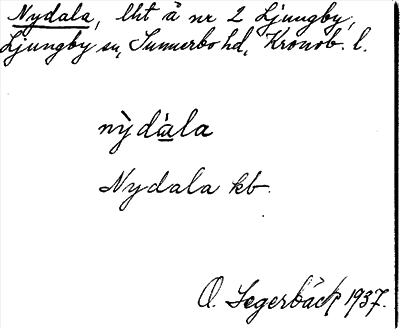 Nydala, lht å nr 2 Ljungby,
Ljungby sn, Sunnerbo hd, Kronob. l.
nỳdàla
Nydala kb.
O. Segerbäck 1937.